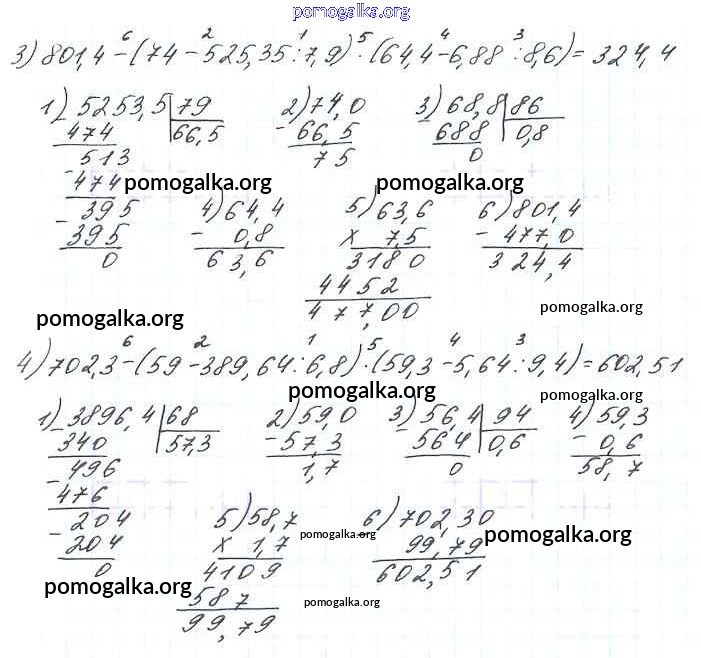 pomogalka.org
6 2 1 5 4 3
3) 801,4 - (74 - 525,35 : 7,9) · (64,4 - 6,88 : 8,6) = 324,4
1) 5253,5 | 79 2) 74,0 3) 68,8 | 86
- 474 66,5 - 66,5 - 688 0,8
513 7,5 0
- 474 pomogalka.org pomogalka.org
- 395 4) 64,4 5) 63,6 6) 801,4
395 - 0,8 x 7,5 - 477,0
0 63,6 3180 324,4
4452
pomogalka.org 477,00 pomogalka.org
6 2 1 5 4 3
4) 702,3 - (59 - 389,64 : 6,8) · (59,3 - 5,64 : 9,4) = 602,51
pomogalka.org pomogalka.org
1) 3896,4 | 68 2) 59,0 3) 56,4 | 94 4) 59,3
- 340 57,3 - 57,3 - 564 0,6 - 0,6
- 496 1,7 0 58,7
476
- 204 5) 58,7 6) 702,30
204 x 1,7 pomogalka.org - 99,79 pomogalka.org
0 4109 602,51
pomogalka.org 587 pomogalka.org
99,79